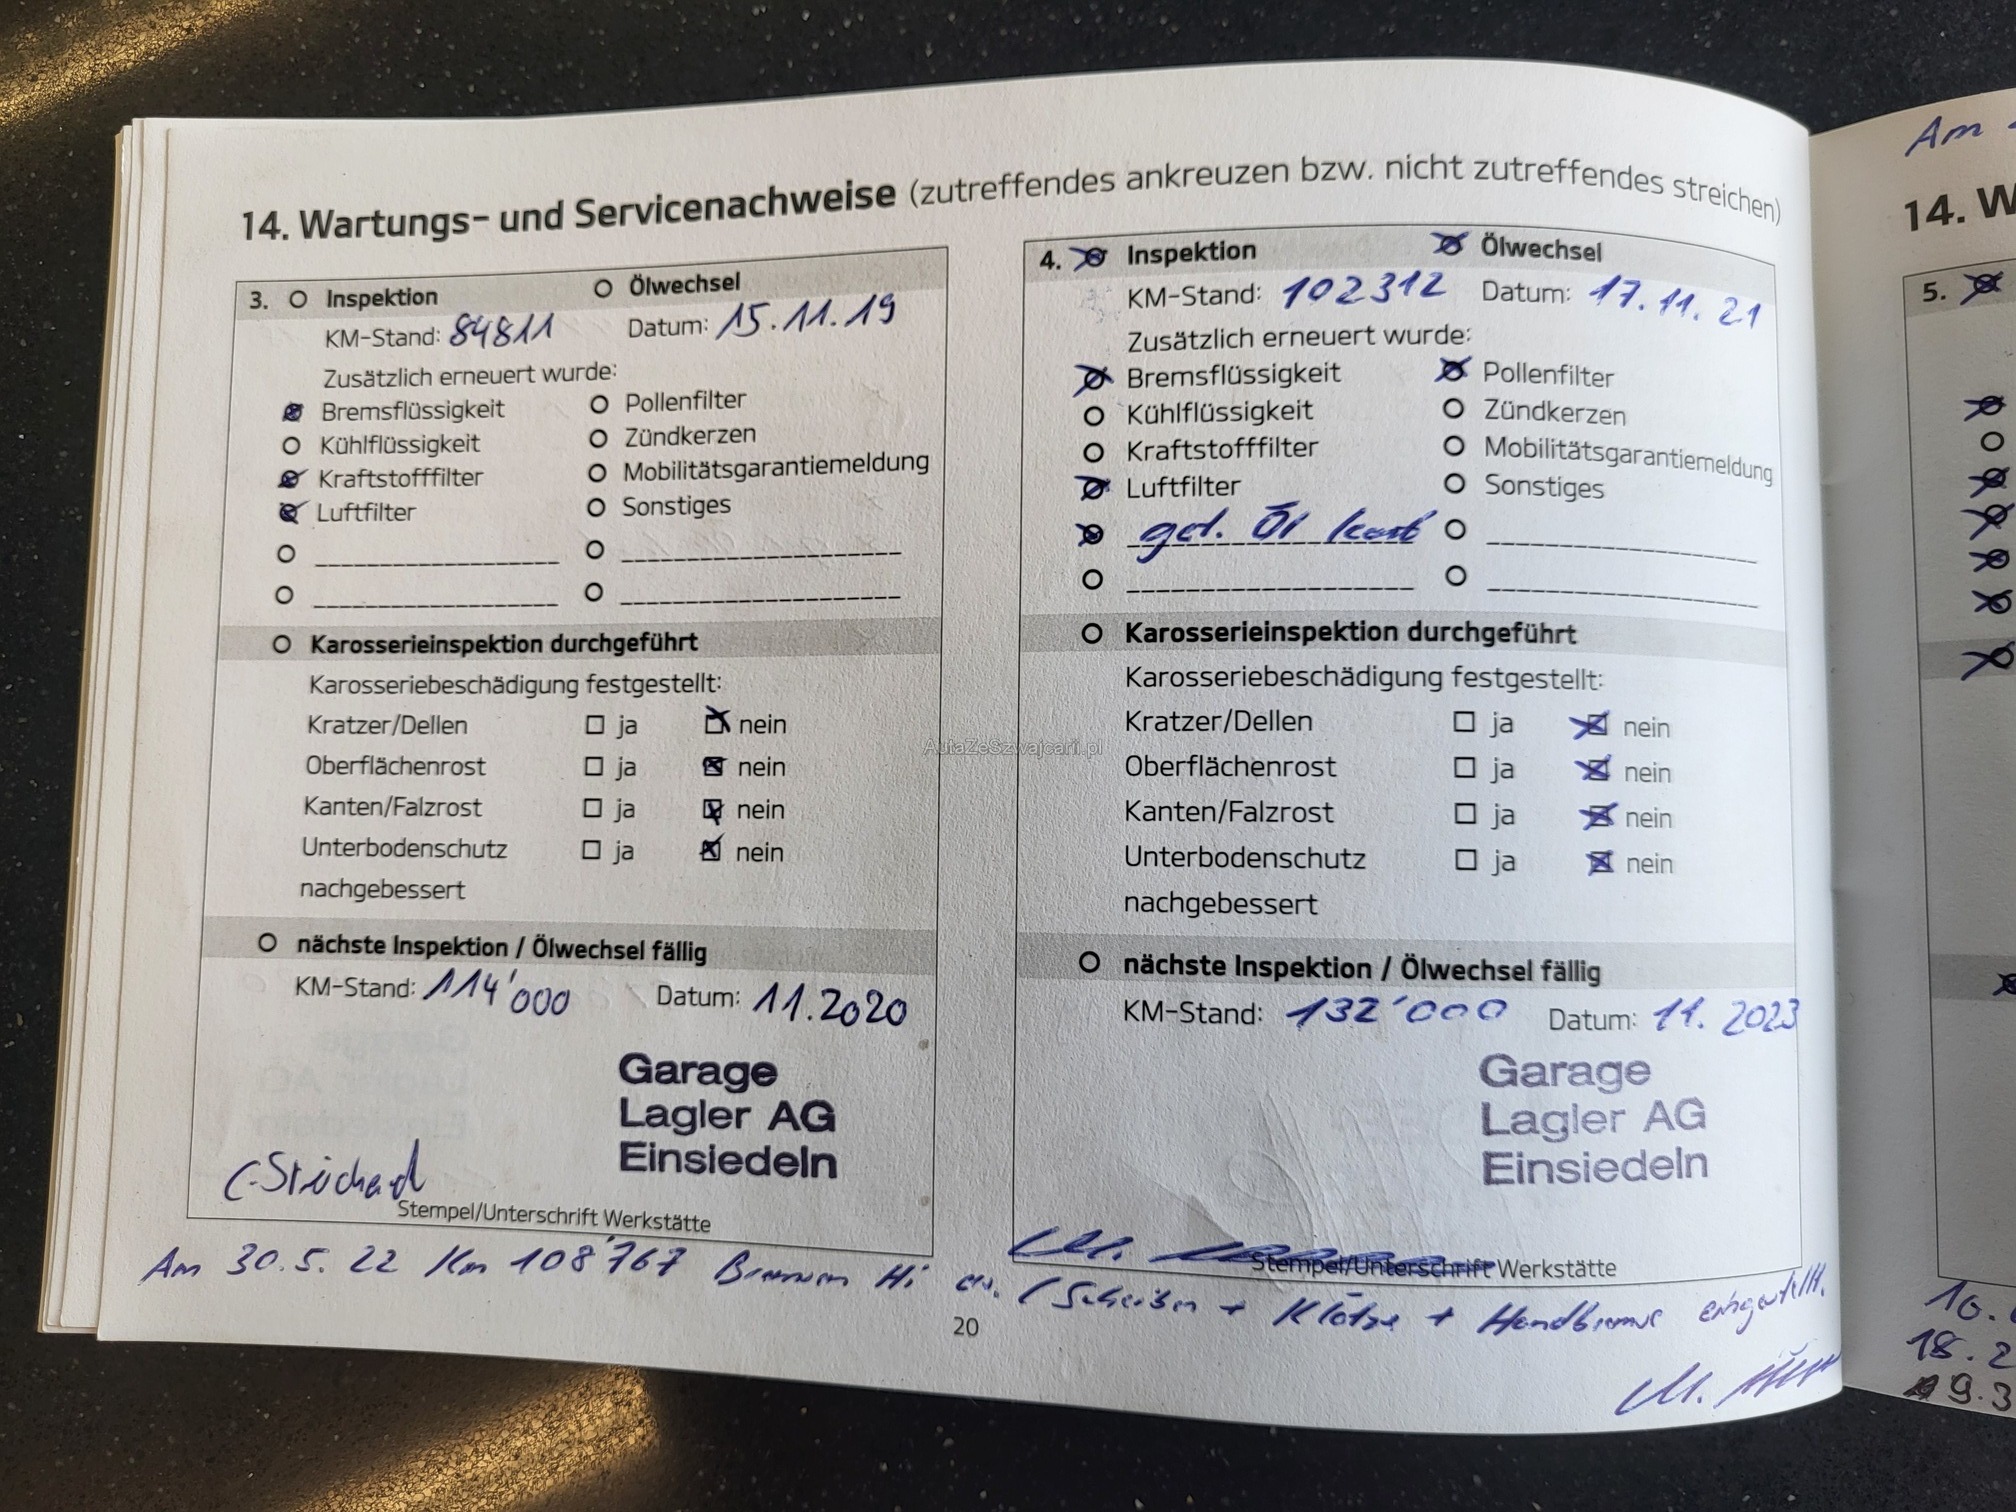 14. Wartungs- und Servicenachweise (zutreffendes ankreuzen bzw. nicht zutreffendes streichen)
3. Inspektion Ölwechsel
KM-Stand: 84811 Datum: 15.11.19
Zusätzlich erneuert wurde:
Bremsflüssigkeit Pollenfilter
Kühlflüssigkeit Zündkerzen
Kraftstofffilter Mobilitätsgarantiemeldung
Luftfilter Sonstiges
Karosserieinspektion durchgeführt
Karosseriebeschädigung festgestellt:
Kratzer/Dellen ja nein
Oberflächenrost ja nein
Kanten/Falzrost ja nein
Unterbodenschutz ja nein
nachgebessert
nächste Inspektion / Ölwechsel fällig
KM-Stand: 114'000 Datum: 11.2020
Garage
Lagler AG
Einsiedeln
Stempel/Unterschrift Werkstätte
4. Inspektion Ölwechsel
KM-Stand: 102312 Datum: 17.11.21
Zusätzlich erneuert wurde:
Bremsflüssigkeit Pollenfilter
Kühlflüssigkeit Zündkerzen
Kraftstofffilter Mobilitätsgarantiemeldung
Luftfilter Sonstiges
Öl
Karosserieinspektion durchgeführt
Karosseriebeschädigung festgestellt:
Kratzer/Dellen ja nein
Oberflächenrost ja nein
Kanten/Falzrost ja nein
Unterbodenschutz ja nein
nachgebessert
nächste Inspektion / Ölwechsel fällig
KM-Stand: 132'000 Datum: 11.2023
Garage
Lagler AG
Einsiedeln
Stempel/Unterschrift Werkstätte
Am 30.5.22 Km 108'767 Bremsen Hi (Scheiben + Klötze + Handbremse eingestellt.
20
AutaZeSzwajcarii.pl
Am
14. W
5.
10.
18.2
19.3